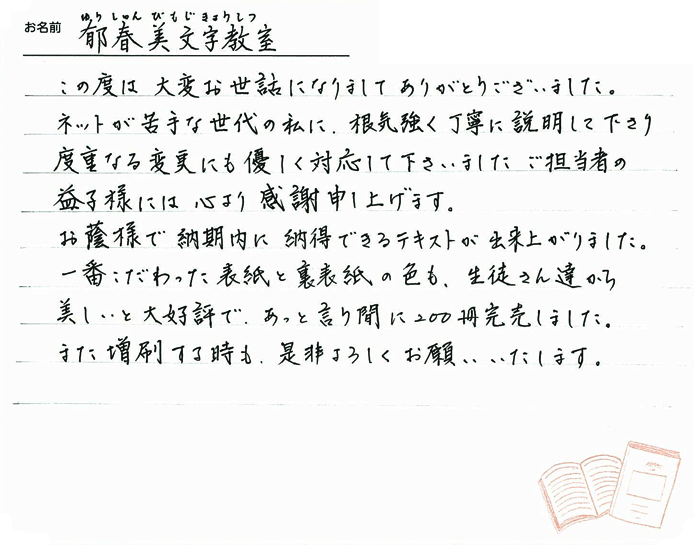 ゆうしゅんびもじきょうしつ
お名前 郁春美文字教室
この度は 大変お世話になりまして ありがとうございました。
ネットが苦手な世代の私に、根気強く丁寧に説明して下さり
度重なる変更にも優しく対応して下さいました ご担当者の
益子様には 心より 感謝申し上げます。
お蔭様で 納期内に 納得できるテキストが 出来上がりました。
一番こだわった表紙と裏表紙の色も、生徒さん達から
美しいと大好評で、あっと言う間に200冊完売しました。
また増刷する時も、是非よろしくお願いいたします。